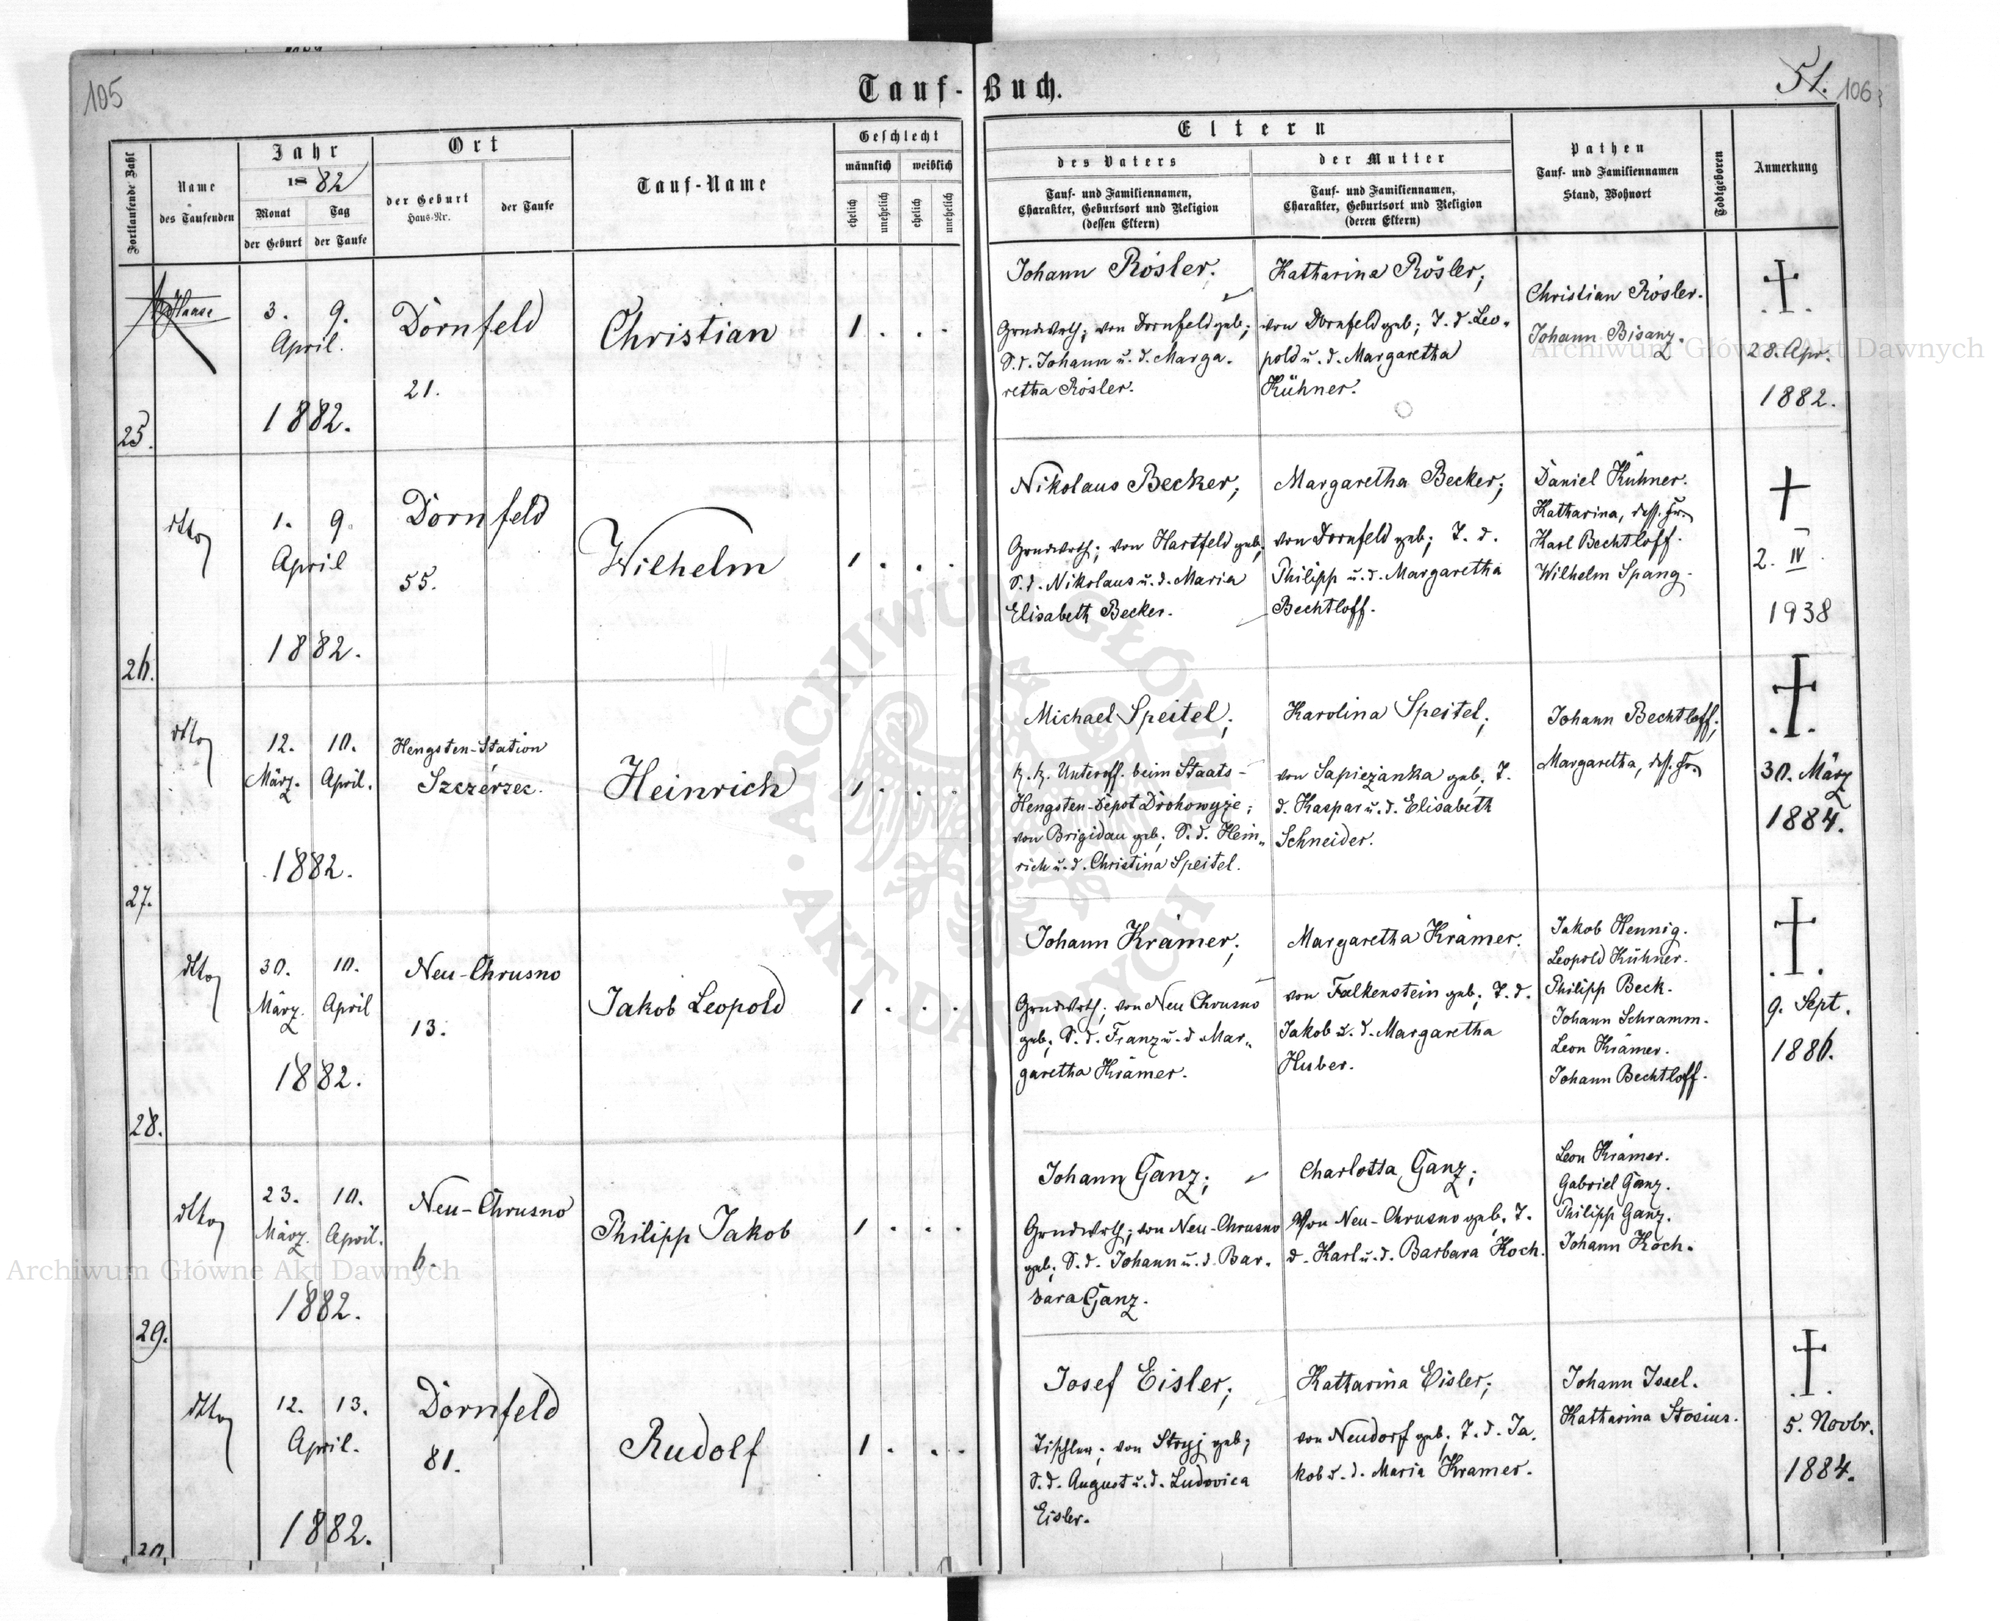 105
Tauf-Buch.
51.
106
Fortlaufende Zahl
Name
des Taufenden
Jahr
1882
Monat
Tag
der Geburt
der Taufe
Ort
der Geburt
Haus-Nr.
der Taufe
Tauf-Name
Geschlecht
männlich
weiblich
ehelich
unehelich
ehelich
unehelich
Eltern
des Vaters
Tauf- und Familiennamen,
Charakter, Geburtsort und Religion
(dessen Eltern)
der Mutter
Tauf- und Familiennamen,
Charakter, Geburtsort und Religion
(deren Eltern)
Pathen
Tauf- und Familiennamen
Stand, Wohnort
Todtgeboren
Anmerkung
25.
Haase
3. 9.
April.
1882.
Dornfeld
21.
Christian
1 . . .
Johann Rösler;
Grundwrth; von Dornfeld geb;
S. d. Johann u. d. Marga-
retha Rösler.
Katharina Rösler;
von Dornfeld geb; T. d. Leo-
pold u. d. Margaretha
Kühner.
Christian Rösler.
Johann Bisanz.
28. Apr.
1882.
26.
dtto
1. 9.
April
1882.
Dornfeld
55.
Wilhelm
1 . . .
Nikolaus Becker;
Grundwrth; von Hartfeld geb;
S. d. Nikolaus u. d. Maria
Elisabeth Becker.
Margaretha Becker;
von Dornfeld geb; T. d.
Philipp u. d. Margaretha
Bechtloff.
Daniel Kühner.
Katharina, dess. Fr.
Karl Bechtloff.
Wilhelm Spang.
2. IV.
1938
27.
dtto
12. 10.
März. April.
1882.
Hengsten-Station
Szczérzec.
Heinrich
1 . . .
Michael Speitel;
k. k. Unteroff. beim Staats-
Hengsten-Depot Drohowyze;
von Brigidau geb; S. d. Hein-
rich u. d. Christina Speitel.
Karolina Speitel;
von Sapiezanka geb; T.
d. Kaspar u. d. Elisabeth
Schneider.
Johann Bechtloff;
Margaretha, dess. Fr.
30. März
1884.
28.
dtto
30. 10.
März. April
1882.
Neu-Chrusno
13.
Jakob Leopold
1 . . .
Johann Krämer;
Grundwrth; von Neu Chrusno
geb; S. d. Franz u. d. Mar-
garetha Krämer.
Margaretha Krämer.
von Falkenstein geb; T. d.
Jakob u. d. Margaretha
Huber.
Jakob Hennig.
Leopold Kühner.
Philipp Beck.
Johann Schramm.
Leon Krämer.
Johann Bechtloff.
9. Sept.
1886.
29.
dtto
23. 10.
März. April.
1882.
Neu-Chrusno
6.
Philipp Jakob
1 . . .
Johann Ganz;
Grundwrth; von Neu-Chrusno
geb; S. d. Johann u. d. Bar-
bara Ganz.
Charlotta Ganz;
Von Neu-Chrusno geb; T.
d. Karl u. d. Barbara Koch.
Leon Krämer.
Gabriel Ganz.
Philipp Ganz.
Johann Koch.
30
dtto
12. 13.
April.
1882.
Dornfeld
81.
Rudolf
1 . . .
Josef Eisler;
Tischler; von Stryj geb;
S. d. August u. d. Ludovica
Eisler.
Katharina Eisler;
von Neudorf geb; T. d. Ja-
kob u. d. Maria Kramer.
Johann Issel.
Katharina Stosius.
5. Novbr.
1884.
Archiwum Główne Akt Dawnych
Archiwum Główne Akt Dawnych
ARCHIWUM GŁÓWNE
AKT DAWNYCH